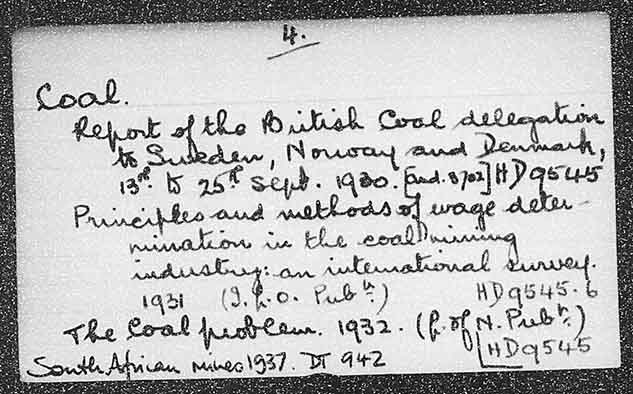 4.
Coal.
Report of the British Coal delegation
to Sweden, Norway and Denmark,
13th to 25th Sept. 1930. [cmd. 3702] HD9545
Principles and methods of wage deter-
mination in the coal mining
industry: an international survey.
1931 (I.L.O. Pubn.) HD9545.6
The Coal problem. 1932. (L. of N. Pubn.)
HD9545
South African mines 1937. DT 942